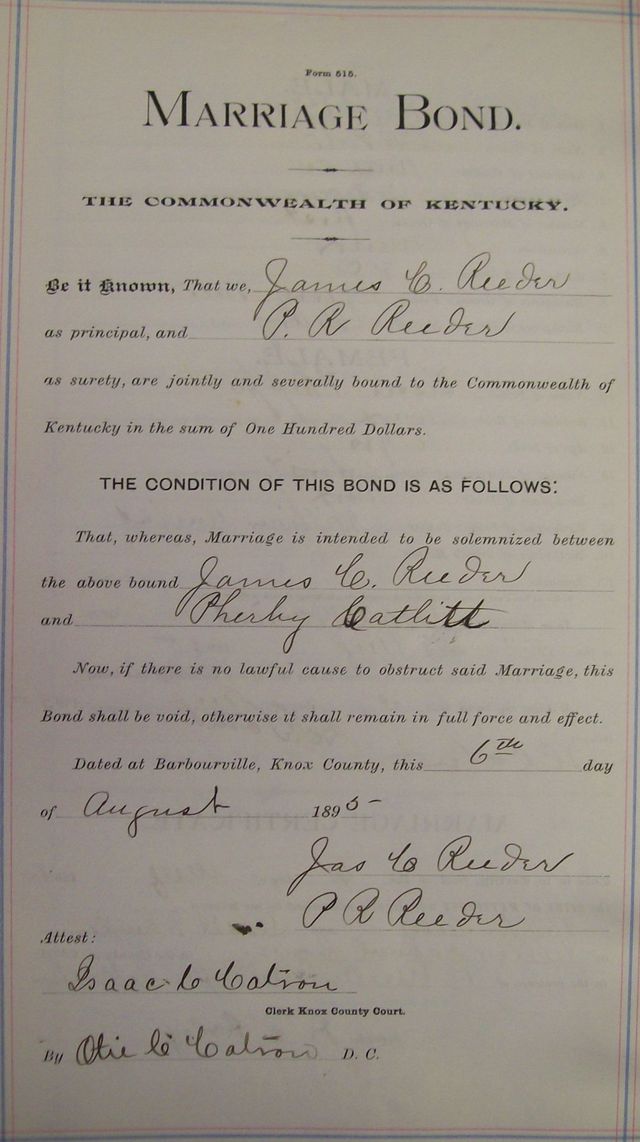 Form 515.
MARRIAGE BOND.
THE COMMONWEALTH OF KENTUCKY.
Be it Known, That we, James C. Reeder
as principal, and P. R Reeder
as surety, are jointly and severally bound to the Commonwealth of
Kentucky in the sum of One Hundred Dollars.
THE CONDITION OF THIS BOND IS AS FOLLOWS:
That, whereas, Marriage is intended to be solemnized between
the above bound James C. Reeder
and Pherby Catlitt
Now, if there is no lawful cause to obstruct said Marriage, this
Bond shall be void, otherwise it shall remain in full force and effect.
Dated at Barbourville, Knox County, this 6th day
of August 1895
Jas C Reeder
P R Reeder
Attest:
Isaac C Catron
Clerk Knox County Court.
By Otie C Catron D. C.